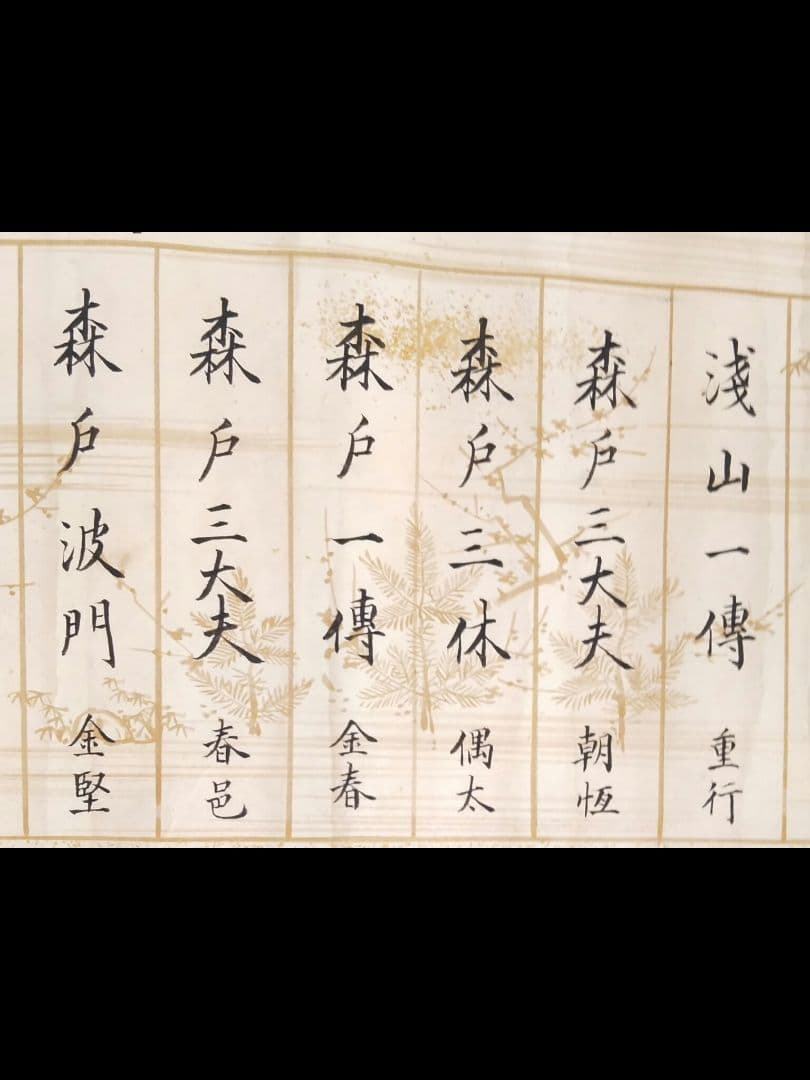 淺山一傳 重行
森戸三大夫 朝恆
森戸三休 偶太
森戸一傳 金春
森戸三大夫 春邑
森戸波門 金堅